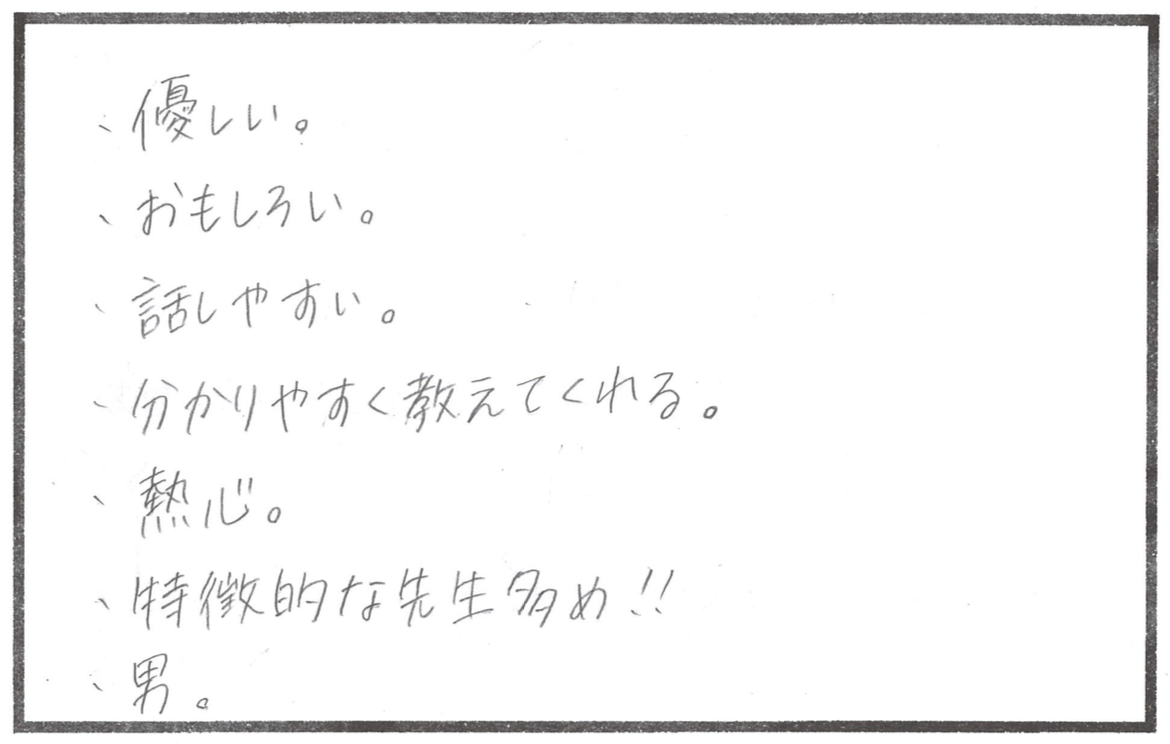 、優しい。
、おもしろい。
、話しやすい。
、分かりやすく教えてくれる。
、熱心。
、特徴的な先生多め!!
、男。